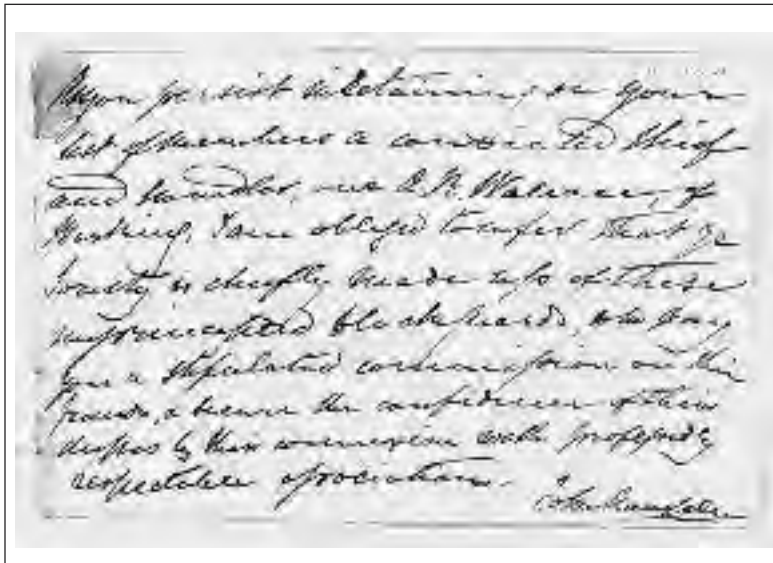 As you persist in retaining on your
list of members a convicted thief
and swindler, one A. R. Wallace, of
I am obliged to infer that yr
Society is chiefly made up of these
unprincipled blackguards, who pay
you a stipulated commission on their
frauds, & secure the confidence of their
dupes by their connexion with professedly
respectable associations.
John Hampden